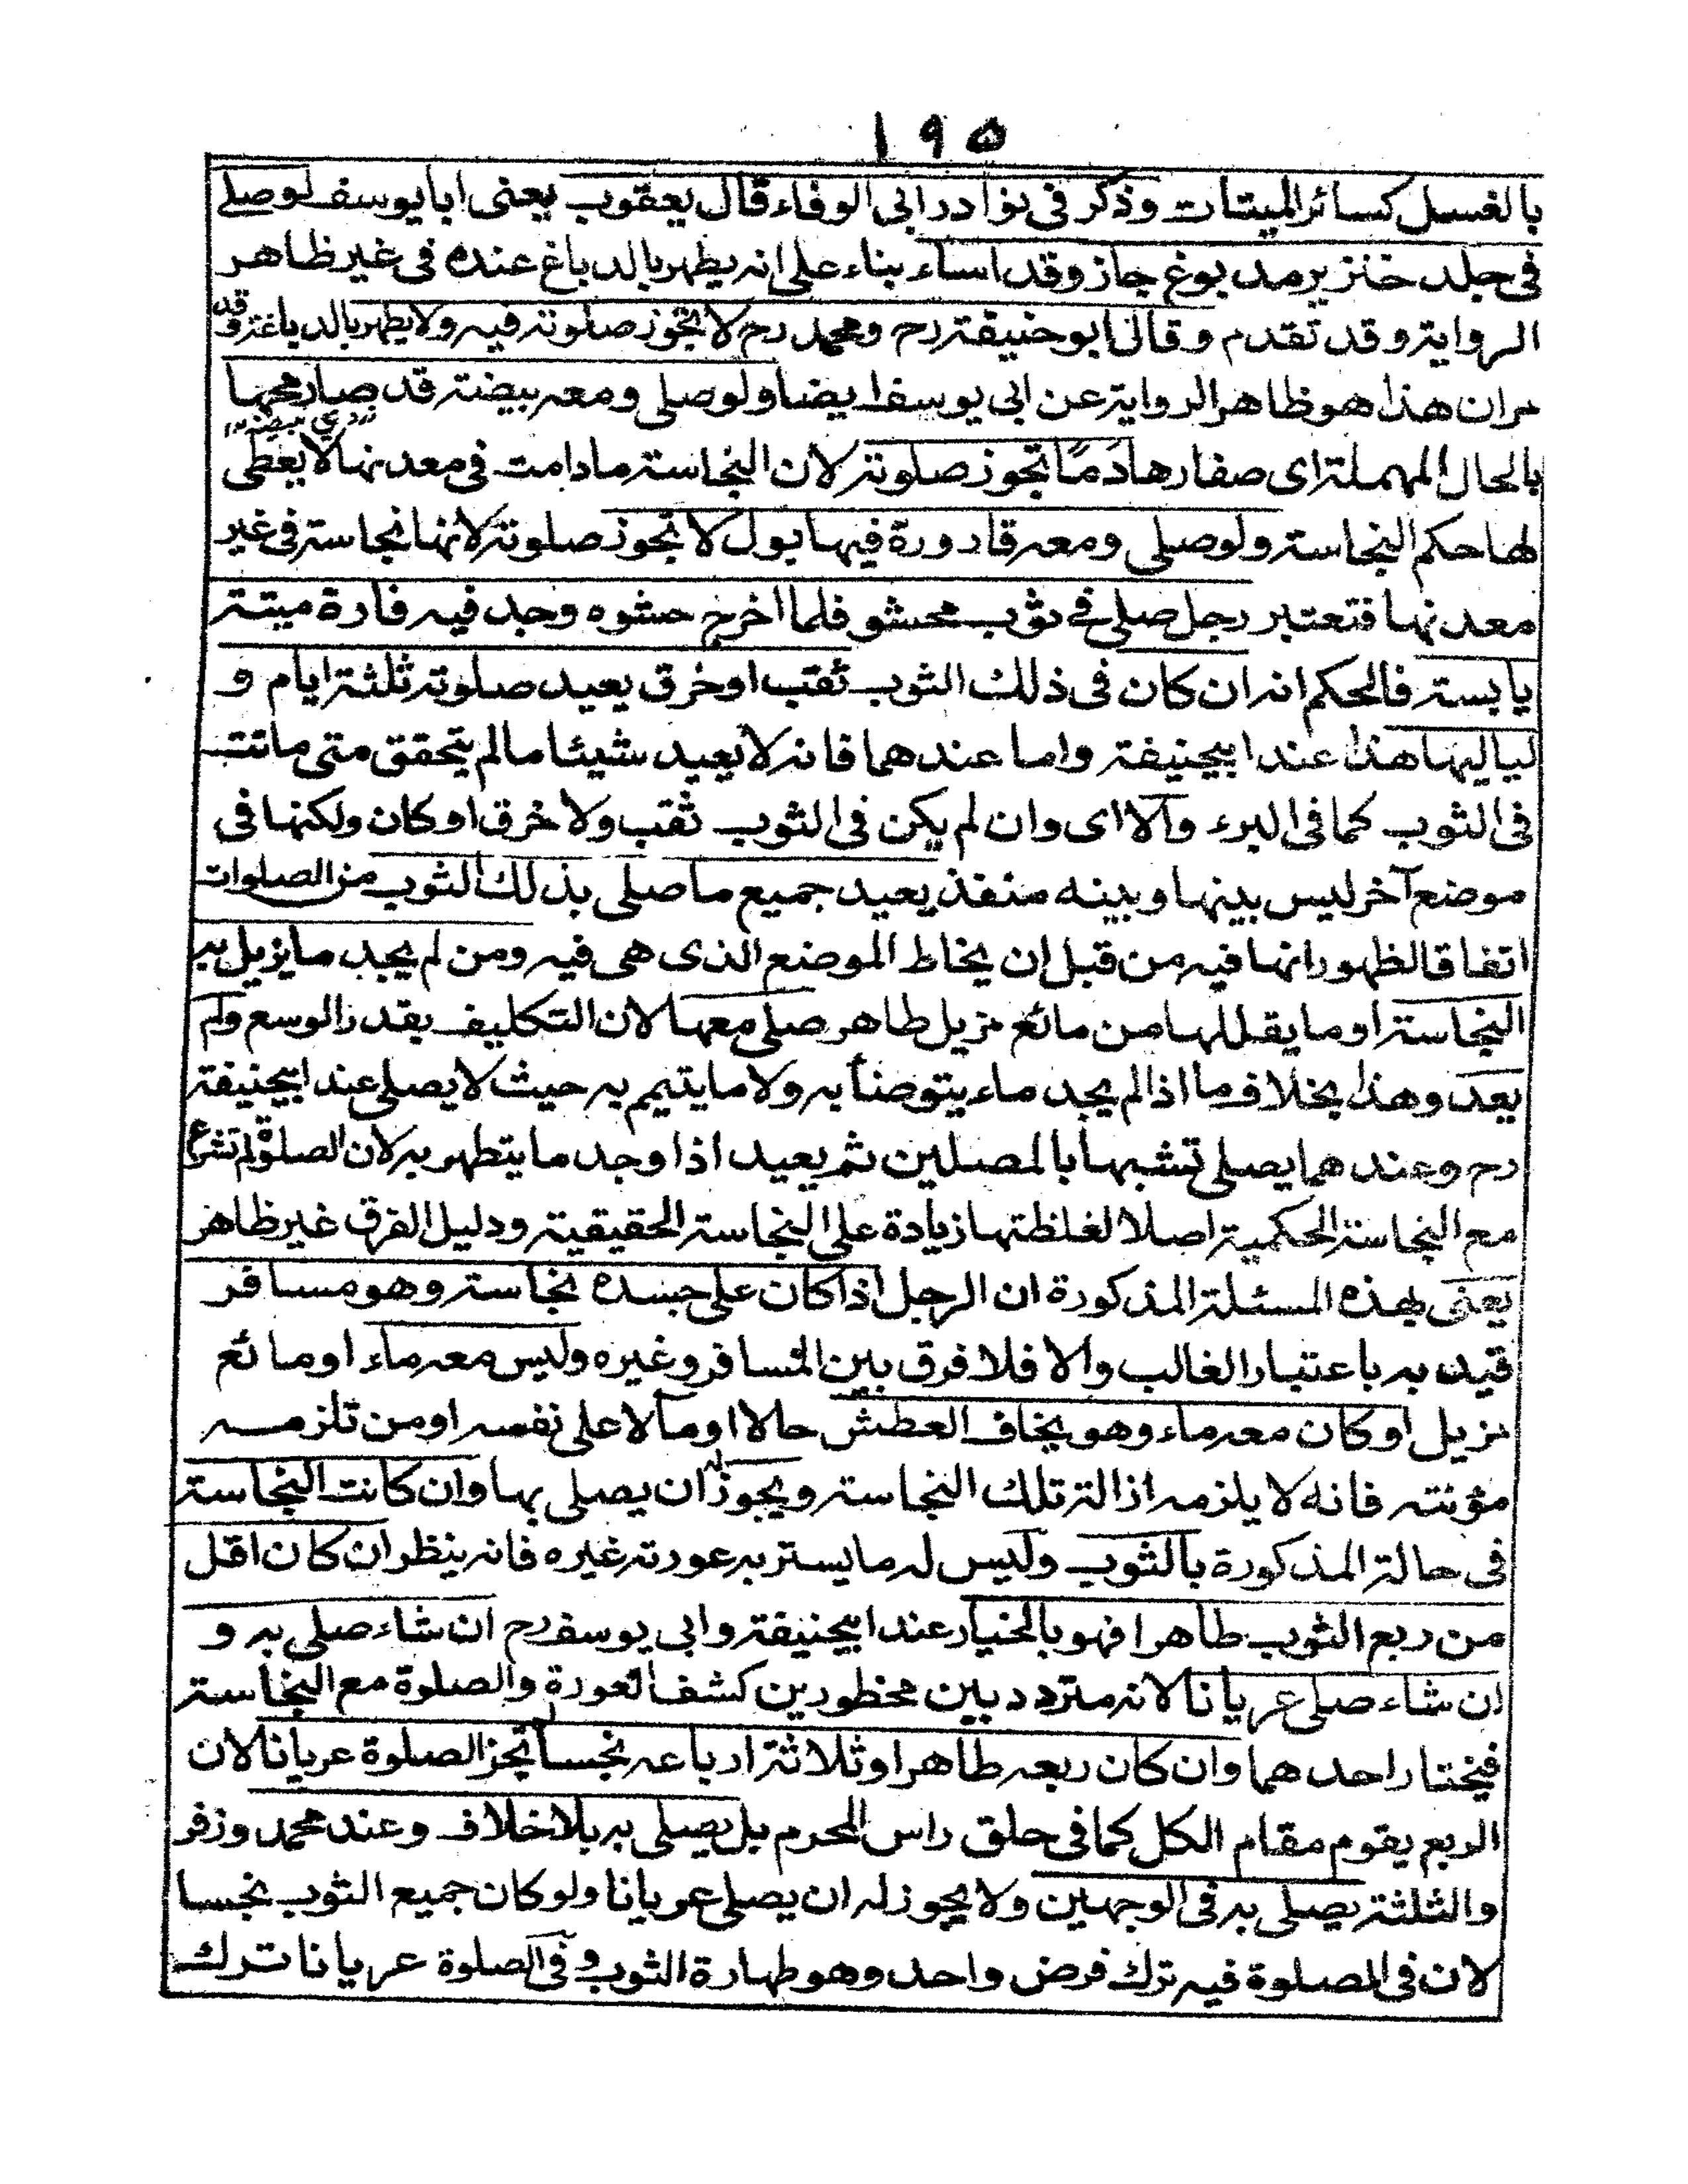 ١٩٥
بالغسل كسائر الميتات وذكر فى نوادر ابى الوفاء قال يعقوب يعنى ابا يوسف لو صلے
فى جلد خنزير مدبوغ جاز وقد اساء بناء على انه يطهر بالدباغ عنده فى غير ظاهر
الرواية وقد تقدم وقال ابو حنيفة رح ومحمد رح لا تجوز صلوته فيه ولا يطهر بالدباغة وقد
مر ان هذا هو ظاهر الرواية عن ابى يوسف ايضا ولو صلى ومعه بيضة قد صار محها
زردي بيضه ١٢
بالحال المهملة اى صفارها دَمًا تجوز صلوته لان النجاسة ما دامت فى معدنها لا يعطى
لها حكم النجاسة ولو صلى ومعه قارورة فيها بول لا تجوز صلوته لانها نجاسة فى غير
معدنها فتعتبر رجل صلى فى ثوب محشو فلما اخرج حشوه وجد فيه فارة ميتة
يابسة فالحكم انه ان كان فى ذلك الثوب ثقب او خرق يعيد صلوته ثلثة ايام و
لياليها هذا عند ابيحنيفة واما عندهما فانه لا يعيد شيئا ما لم يتحقق متى ماتت
فى الثوب كما فى البرء والا اى وان لم يكن فى الثوب ثقب ولا خرق او كان ولكنها فى
موضع آخر ليس بينها وبينه منفذ يعيد جميع ما صلى بذلك الثوب من الصلوات
اتفاقا لظهور انها فيه من قبل ان يخاط الموضع الذى هى فيه ومن لم يجد ما يزيل به
النجاسة او ما يقللها من مائع مزيل طاهر صلى معها لان التكليف بقدر الوسع ولم
يعد وهذا بخلاف ما اذا لم يجد ماء يتوضأ به ولا ما يتيمم به حيث لا يصلى عند ابيحنيفة
رح وعندهما يصلى تشبها بالمصلين ثم يعيد اذا وجد ما يتطهر به لان الصلوة لم تشرع
مع النجاسة الحكمية اصلا لغلظتها زيادة على النجاسة الحقيقية ودليل الفرق غير ظاهر
يعنى بهذه المسئلة المذكورة ان الرجل اذا كان على جسده نجاسة وهو مسافر
قيد به باعتبار الغالب والا فلا فرق بين المسافر وغيره وليس معه ماء او مائع
مزيل او كان معه ماء وهو يخاف العطش حالا او مآلا على نفسه او من تلزمه
مؤنته فانه لا يلزمه ازالة تلك النجاسة ويجوز له ان يصلى بها وان كانت النجاسة
فى حالة المذكورة بالثوب وليس له ما يستر به عورته غيره فانه ينظر ان كان اقل
من ربع الثوب طاهرا فهو بالخيار عند ابيحنيفة وابى يوسف رح ان شاء صلى به و
ان شاء صلى عريانا لانه متردد بين محظورين كشف العورة والصلوة مع النجاسة
فيختار احدهما وان كان ربعه طاهرا وثلاثة ارباعه نجسا لم تجز الصلوة عريانا لان
الربع يقوم مقام الكل كما فى حلق راس المحرم بل يصلى به بلا خلاف وعند محمد وزفر
والثلثة يصلى به فى الوجهين ولا يجوز له ان يصلى عريانا ولو كان جميع الثوب نجسا
لان فى الصلوة فيه ترك فرض واحد وهو طهارة الثوب وفى الصلوة عريانا ترك